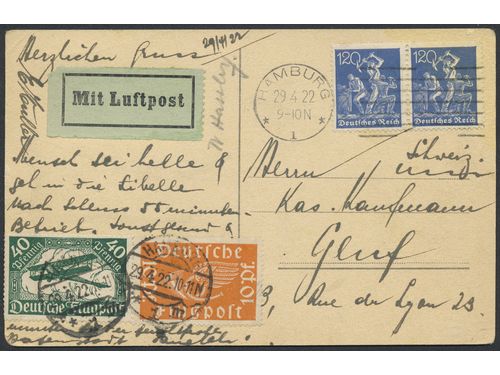 Herzlichen Gruss
29/4 22
Mit Luftpost
HAMBURG
29.4.22
9-10N
* 1 *
120 120
Deutsches Reich Deutsches Reich
Mensch sei helle &
geh in die Libelle
nach Schluss 50 minuten
Betrieb.
Herrn
Schweiz
Kas. Kaufmann
Genf
Rue de Lyon 23
40 40
Pfennig Pfennig
Deutsche Flugpost
Deutsche
10 Pf.
Flugpost
29.4.22.10-11N